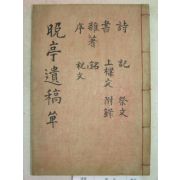 晩亭遺稿單
詩 記 祭文
書 上樑文 附錄
雜著 銘
序 祝文